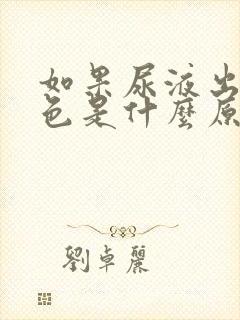 如果尿液出
色是什麼原
劉卓麗